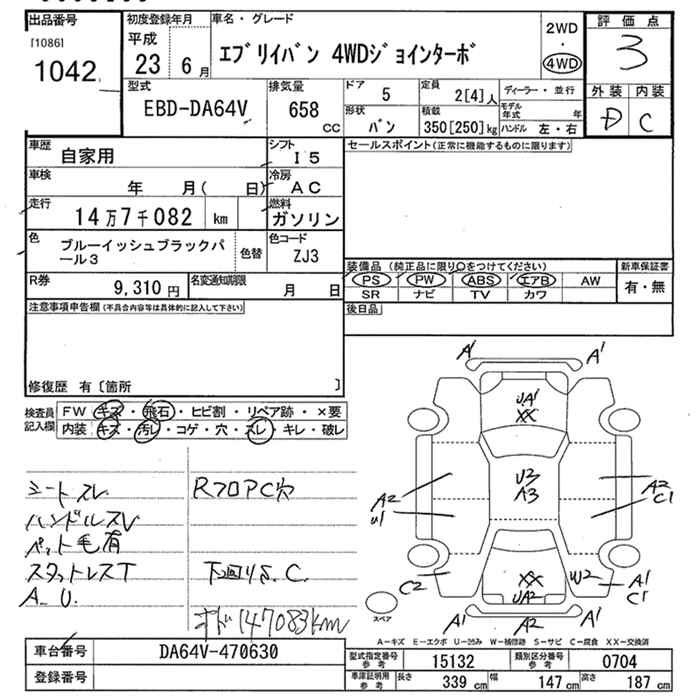 出品番号
[1086]
1042
初度登録年月
平成
23 6月
車名・グレード
エブリイバン 4WDジョインターボ
2WD
・
4WD
評価点
3
外装 内装
D C
型式
EBD-DA64V
排気量
658
CC
ドア 5
形状 バン
定員 2[4]人
積載 350[250]kg
ディーラー・並行
モデル年式 年
ハンドル 左・右
車歴 自家用
シフト I5
車検 年 月( 日)
冷房 AC
走行 14万7千082 km
燃料 ガソリン
色 ブルーイッシュブラックパール3
色替
色コード ZJ3
R券 9,310円
名変通知期限 月 日
セールスポイント(正常に機能するものに限ります)
装備品 (純正品に限り○をつけてください)
PS PW ABS エアB AW
SR ナビ TV カワ
新車保証書
有・無
後日品
注意事項申告欄(不具合内容等は具体的に記入して下さい)
修復歴 有〔箇所 〕
検査員記入欄
FW キズ・飛石・ヒビ割・リペア跡・×要
内装 キズ・汚レ・コゲ・穴・スレ・キレ・破レ
シートスレ
ハンドルスレ
ペット毛有
スタットレスT
A_U.
RフロアC穴
下回りS.C.
オド147083km
A1 A1
UA1
XX
U2
A3
A2
U1
A2
C1
C2
XX
UA2
W2
A1
C1
A1 A2 A1
スペア
A-キズ E-エクボ U-凹み W-補修跡 S-サビ C-腐食 XX-交換済
車台番号 DA64V-470630
登録番号
型式指定番号 参考 15132
類別区分番号 参考 0704
車庫証明用 参考 長さ 339cm 幅 147cm 高さ 187cm